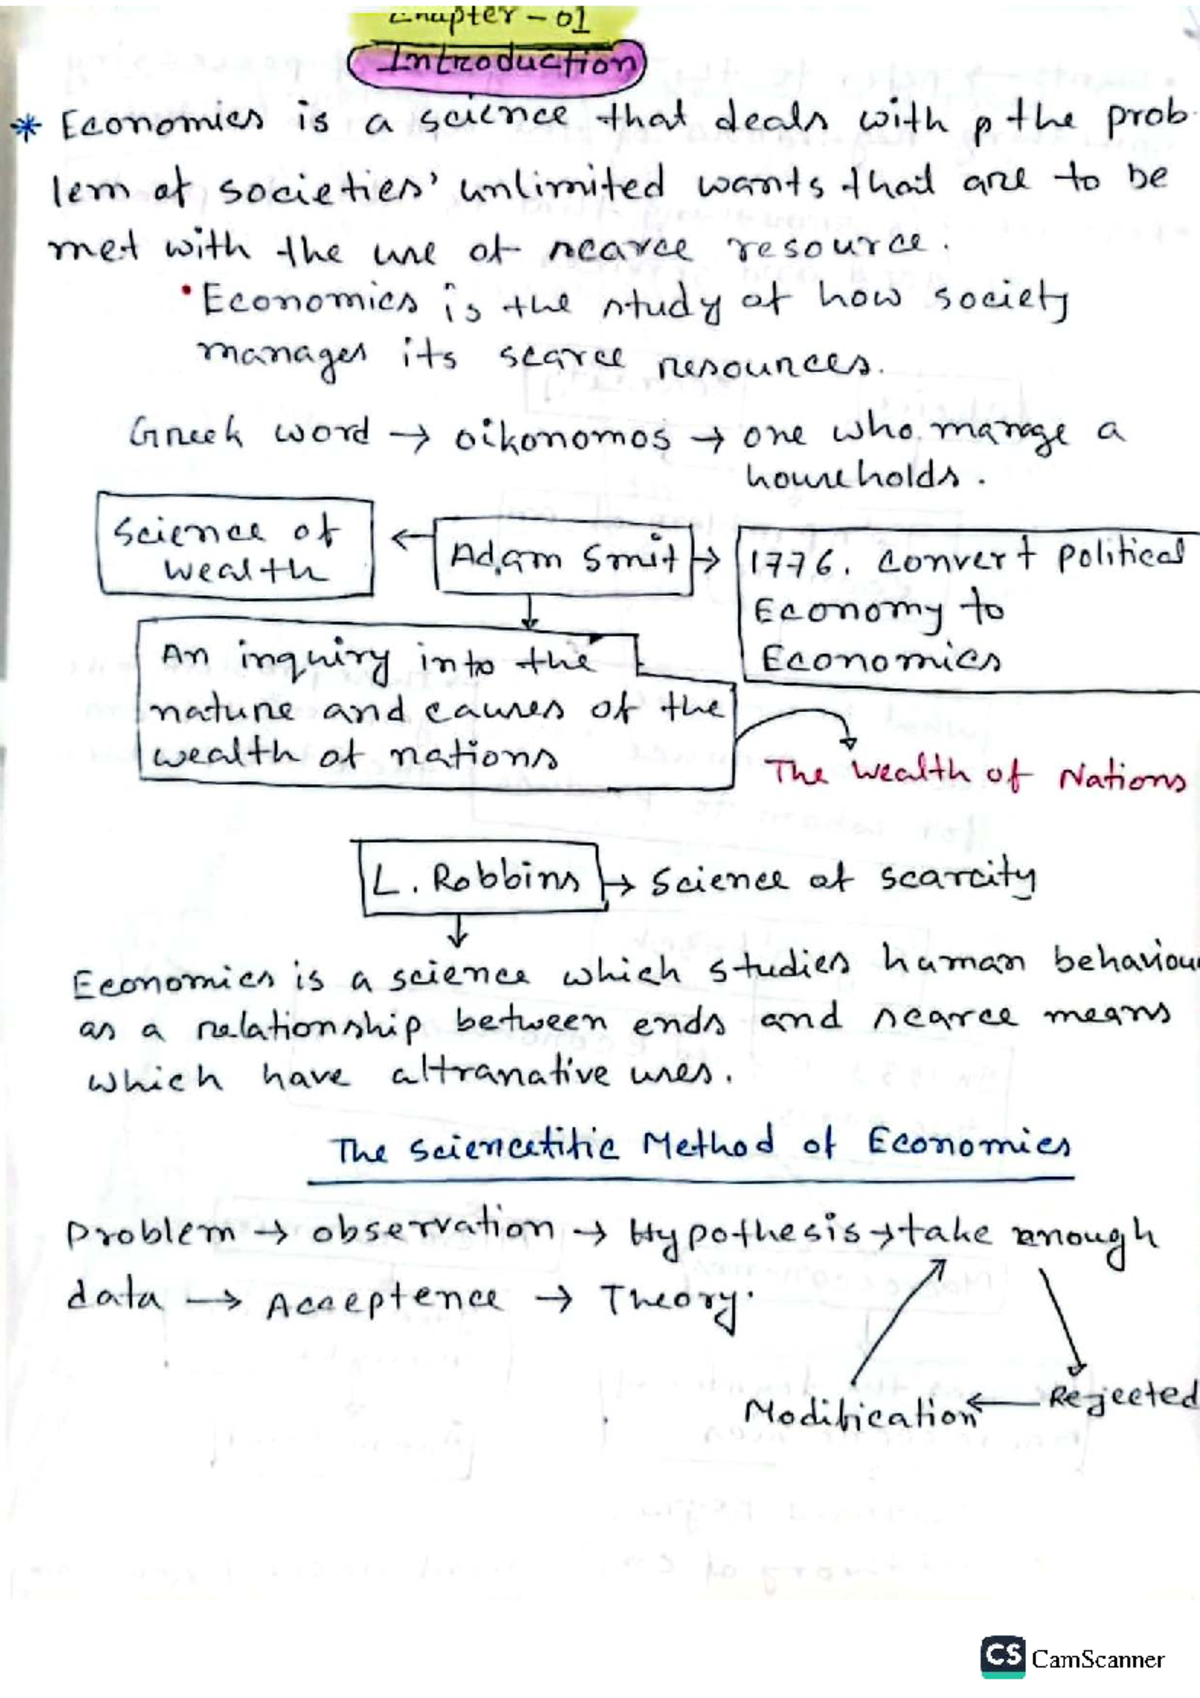 Chapter - 01
Introduction
* Economics is a science that deals with p the prob-
lem of societies' unlimited wants that are to be
met with the use of scarce resource.
• Economics is the study of how society
manages its scarce resources.
Greek word → oikonomos → one who manage a
households.
Science of
wealth
← Adam Smit →
1776. Convert political
Economy to
Economics
An inquiry into the
nature and causes of the
wealth of nations
The Wealth of Nations
L. Robbins → Science of scarcity
Economics is a science which studies human behaviou
as a relationship between ends and scarce means
which have altranative uses.
The Sciencetific Method of Economics
Problem → observation → Hypothesis → take enough
data → Acceptence → Theory.
Modification ← Rejected
CS CamScanner